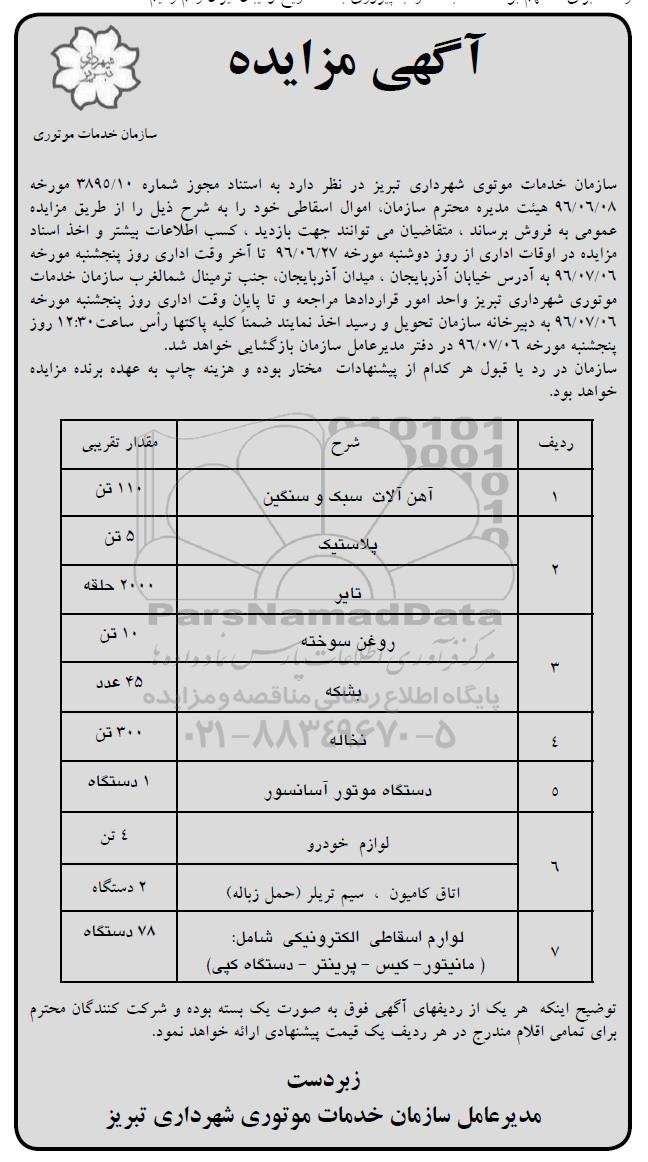 آگهی مزایده
شهرداری تبریز
سازمان خدمات موتوری
سازمان خدمات موتوی شهرداری تبریز در نظر دارد به استناد مجوز شماره ۳۸۹۵/۱۰ مورخه
۹۶/۰۶/۰۸ هیئت مدیره محترم سازمان، اموال اسقاطی خود را به شرح ذیل را از طریق مزایده
عمومی به فروش برساند ، متقاضیان می توانند جهت بازدید ، کسب اطلاعات بیشتر و اخذ اسناد
مزایده در اوقات اداری از روز دوشنبه مورخه ۹۶/۰۶/۲۷ تا آخر وقت اداری روز پنجشنبه مورخه
۹۶/۰۷/۰۶ به آدرس خیابان آذربایجان ، میدان آذربایجان، جنب ترمینال شمالغرب سازمان خدمات
موتوری شهرداری تبریز واحد امور قراردادها مراجعه و تا پایان وقت اداری روز پنجشنبه مورخه
۹۶/۰۷/۰۶ به دبیرخانه سازمان تحویل و رسید اخذ نمایند ضمناً کلیه پاکتها رأس ساعت۱۲:۳۰ روز
پنجشنبه مورخه ۹۶/۰۷/۰۶ در دفتر مدیرعامل سازمان بازگشایی خواهد شد.
سازمان در رد یا قبول هر کدام از پیشنهادات مختار بوده و هزینه چاپ به عهده برنده مزایده
خواهد بود.
ردیف شرح مقدار تقریبی
۱ آهن آلات سبک و سنگین ۱۱۰ تن
۲ پلاستیک ۵ تن
تایر ۲۰۰۰ حلقه
۳ روغن سوخته ۱۰ تن
بشکه ۴۵ عدد
۴ نخاله ۳۰۰ تن
۵ دستگاه موتور آسانسور ۱ دستگاه
۶ لوازم خودرو ۴ تن
اتاق کامیون ، سیم تریلر (حمل زباله) ۲ دستگاه
۷ لوارم اسقاطی الکترونیکی شامل: ۷۸ دستگاه
( مانیتور- کیس - پرینتر - دستگاه کپی)
ParsNamadData
مرکز فرآوری اطلاعات پارس نماد داده ها
پایگاه اطلاع رسانی مناقصه و مزایده
۰۲۱-۸۸۳۴۹۶۷۰-۵
توضیح اینکه هر یک از ردیفهای آگهی فوق به صورت یک بسته بوده و شرکت کنندگان محترم
برای تمامی اقلام مندرج در هر ردیف یک قیمت پیشنهادی ارائه خواهد نمود.
زبردست
مدیرعامل سازمان خدمات موتوری شهرداری تبریز